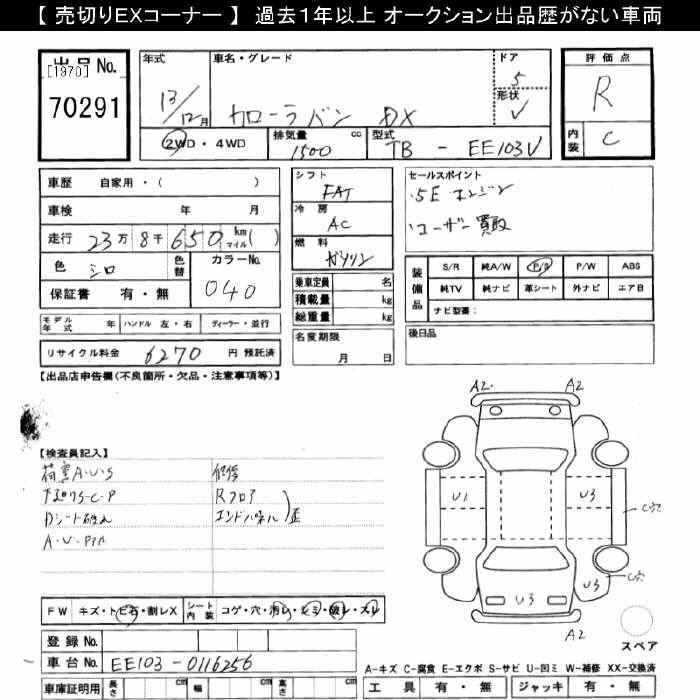 【 売切りEXコーナー 】 過去1年以上 オークション出品歴がない車両
出品 No.
[1970]
70291
年式
13/12月
車名・グレード
カローラバン DX
ドア
5
形状
V
評価点
R
内装
C
2WD・4WD
排気量 cc
1500
型式
TB - EE103V
車歴 自家用・( )
車検 年 月
走行 23万8千650 km マイル( )
色 シロ
色替
カラーNo.
040
保証書 有・無
シフト
FAT
冷房
AC
燃料
ガソリン
乗車定員 名
積載量 kg
総重量 kg
セールスポイント
5E エンジン
ユーザー買取
装備品
S/R 純A/W P/S P/W ABS
純TV 純ナビ 革シート 外ナビ エアB
ナビ型番:
モデル年式 年 ハンドル 左・右 ディーラー・並行
リサイクル料金 6270 円 預託済
名変期限
月 日
後日品
【出品店申告欄(不良箇所・欠品・注意事項等)】
【検査員記入】
荷室A・U・S
下廻りS・C・P
Dシート破れ
修復
Rフロア
エンドパネル 歪
A2 A2
U1 U3
C穴
U3 C穴
U3
A2
スペア
FW キズ・トビ石・割レX シート内装 コゲ・穴・汚レ・シミ・破レ・スレ
登録 No.
車台 No. EE103-0116256
車庫証明用 長さ cm 幅 cm 高さ cm
A-キズ C-腐食 E-エクボ S-サビ U-凹ミ W-補修 XX-交換済
工具 有・無 ジャッキ 有・無